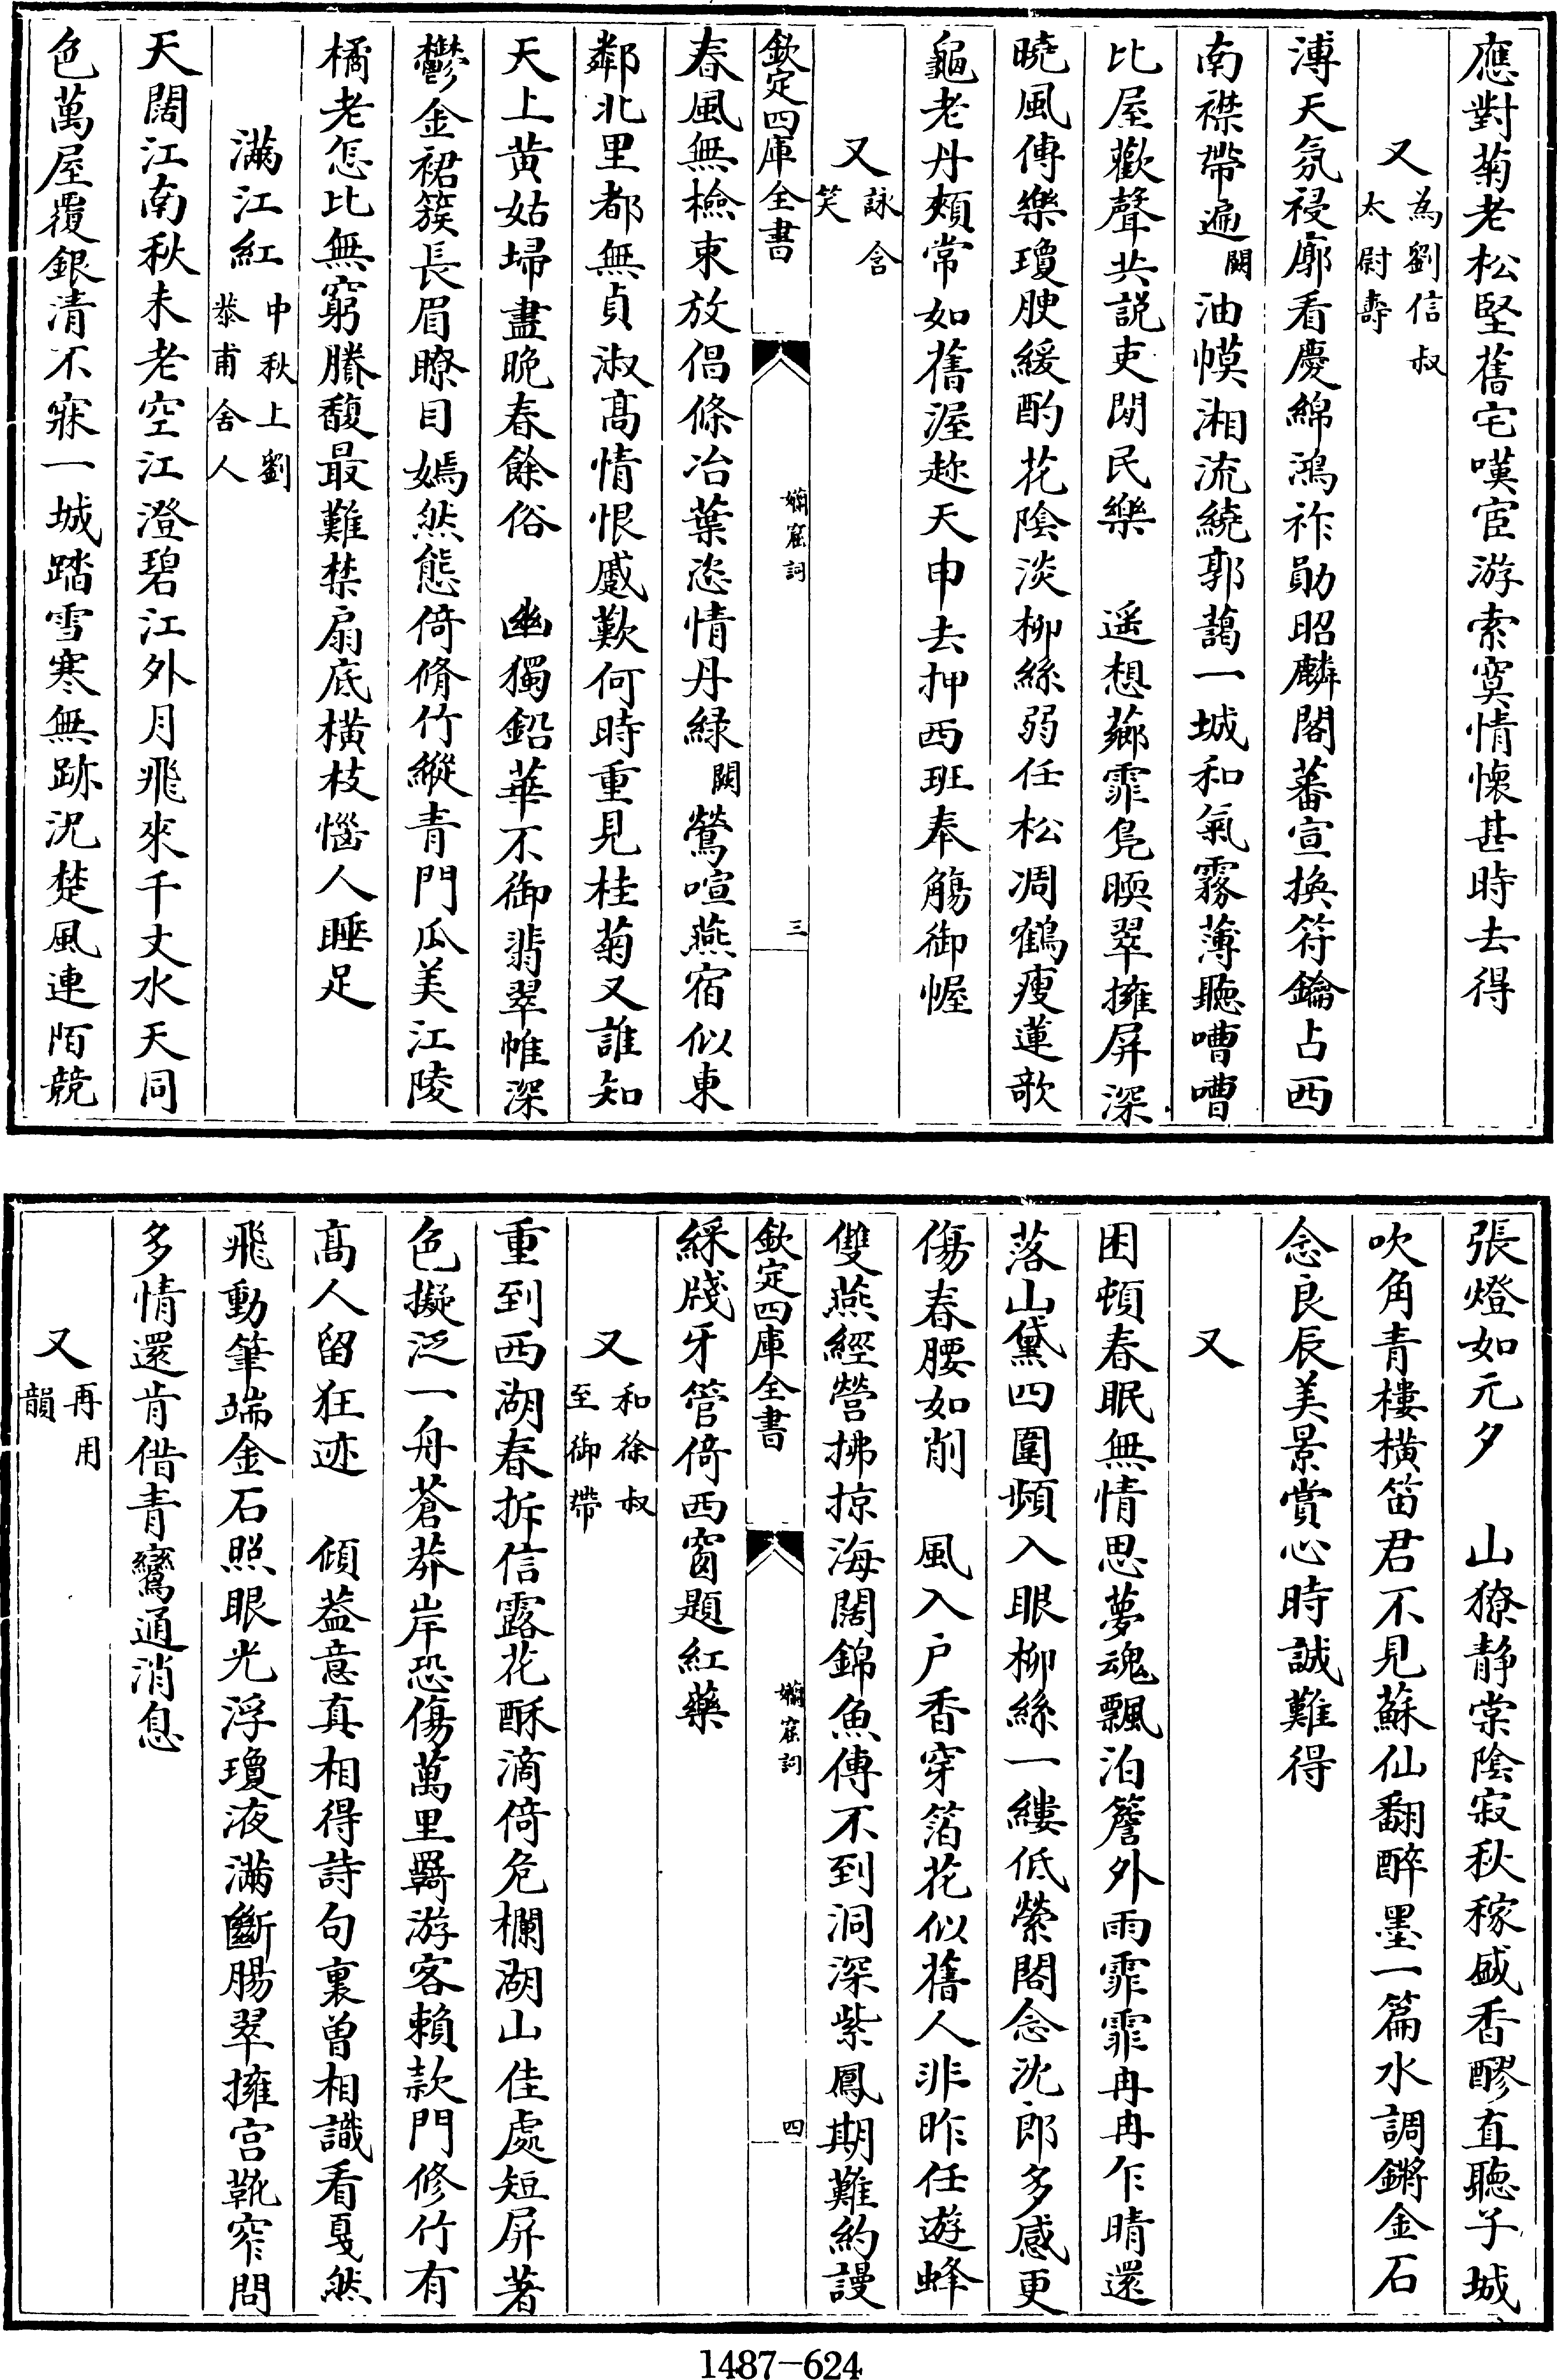 應對菊老松堅舊宅嘆宦游索寞情懷甚時去得
又為劉信叔太尉壽
溥天氛祲廓看慶綿鴻祚勛昭麟閣蕃宣換符鑰占西
南襟帶遍闕油幙湘流繞郭藹一城和氣霧薄聽嘈嘈
比屋歡聲共説吏閒民樂　遥想薌霏凫暎翠擁屏深
曉風傳樂瓊腴緩酌花陰淡柳絲弱任松凋鶴瘦蓮歌
龜老丹頰常如舊渥趂天申去押西班奉觴御幄
又詠含笑
欽定四庫全書
嬾窟詞
三
春風無檢束放倡條冶葉恣情丹緑闕鶯喧燕宿似東
鄰北里都無貞淑髙情恨蹙歎何時重見桂菊又誰知
天上黄姑埽盡晚春餘俗　幽獨鉛華不御翡翠帷深
鬱金裙簇長眉瞭目嫣然態倚脩竹縱青門瓜美江陵
橘老怎比無窮騰馥最難禁扇底横枝惱人睡足
滿江紅中秋上劉恭甫舍人
天闊江南秋未老空江澄碧江外月飛來千丈水天同
色萬屋覆銀清不寐一城踏雪寒無跡況楚風連陌競
張燈如元夕　山獠静棠陰寂秋稼盛香醪直聽子城
吹角青樓横笛君不見蘇仙翻醉墨一篇水調鏘金石
念良辰美景賞心時誠難得
又
困頓春眠無情思夢魂飄泊簷外雨霏霏冉冉乍晴還
落山黛四圍頻入眼柳絲一縷低縈閣念沈郎多感更
傷春腰如削　風入戶香穿箔花似舊人非昨任遊蜂
雙燕經營拂掠海闊錦魚傳不到洞深紫鳳期難約謾
欽定四庫全書
嬾窟詞
四
綵牋牙管倚西窗題紅藥
又和徐叔至御帶
重到西湖春拆信露花酥滴倚危欄湖山佳處短屏著
色擬泛一舟蒼莽岸恐傷萬里羇游客賴款門修竹有
髙人留狂迹　傾葢意真相得詩句裏曾相識看戛然
飛動筆端金石照眼光浮瓊液滿斷腸翠擁宫靴窄問
多情還肯借青鸞通消息
又再用韻
1487-624